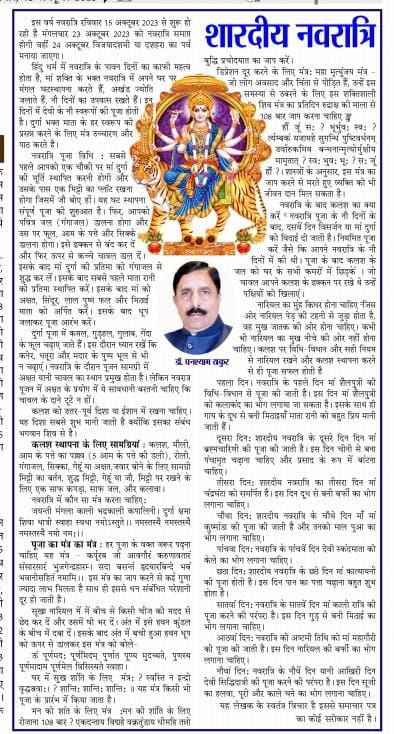 शारदीय नवरात्रि
इस वर्ष नवरात्र रविवार 15 अक्टूबर 2023 से शुरू हो
रही है मंगलवार 23 अक्टूबर 2023 को नवरात्र समाप्त
होगी वहीं 24 अक्टूबर विजयादशमी या दशहरा का पर्व
मनाया जाएगा।
हिंदू धर्म में नवरात्रि के पावन दिनों का काफी महत्व
होता है, मां शक्ति के भक्त नवरात्रि में अपने घर पर
मंगल घटस्थापना करते हैं, अखंड ज्योति
जलाते हैं, नौ दिनों का उपवास रखते हैं। इन
दिनों में देवी के नौ स्वरूपों की पूजा होती
है। दुर्गा भक्त माता के हर स्वरूप को
प्रसन्न करने के लिए मंत्र उच्चारण और
पाठ करते है।
नवरात्रि पूजा विधि : सबसे
पहले आपको एक चौकी पर मां दुर्गा
की मूर्ति स्थापित करनी होगी और
उसके पास एक मिट्टी का प्लॉट रखना
होगा जिसमें जौ बोए हों। यह घट स्थापना
संपूर्ण पूजा की शुरुआत है। फिर, आपको
पवित्र जल (गंगाजल) डालना होगा और
उस पर फूल, आम के पत्ते और सिक्के
डालना होगा। इसे ढक्कन से बंद कर दें
और फिर ऊपर से कच्चे चावल डाल दें।
इसके बाद मां दुर्गा की प्रतिमा को गंगाजल से
शुद्ध कर लें। इसके बाद सबसे पहले माता रानी
की प्रतिमा स्थापित करें। इसके बाद मां को
अक्षत, सिंदूर, लाल पुष्प फल और मिठाई
माता को अर्पित करें। इसके बाद धूप
जलाकर पूजा आरंभ करें।
दुर्गा पूजा में कमल, गुड़हल, गुलाब, गेंदा
के फूल चढ़ाए जाते हैं। इस दौरान ध्यान रखें कि
कनेर, धतूरा और मदार के पुष्प भूल से भी
न चढ़ाएं। नवरात्रि के दौरान पूजन सामग्री में
अक्षत यानी चावल का स्थान प्रमुख होता है। लेकिन नवरात्र
पूजन में अक्षत के प्रयोग में ये सावधानी बरतनी चाहिए कि
चावल के दाने टूटे न हों।
कलश को उत्तर-पूर्व दिशा या ईशान में रखना चाहिए।
यह दिशा सबसे शुभ मानी जाती है क्योंकि इसका संबंध
भगवान शिव से है।
कलश स्थापना के लिए सामग्रियां : कलश, मौली,
आम के पत्ते का पल्लव (5 आम के पत्ते की डली), रोली,
गंगाजल, सिक्का, गेहूं या अक्षत,जवार बोने के लिए सामग्री
मिट्टी का बर्तन, शुद्ध मिट्टी, गेहूं या जौ, मिट्टी पर रखने के
लिए एक साफ कपड़ा, साफ जल, और कलावा।
नवरात्रि में कौन सा मंत्र करना चाहिए:
जयन्ती मंगला काली भद्रकाली कपालिनी। दुर्गा क्षमा
शिवा धात्री स्वाहा स्वधा नमोऽस्तुते।। नमस्तस्यै नमस्तस्यै
नमस्तस्यै नमो नम:।।
पूजा का मंत्र का मंत्र : हर पूजा के वक्त जरूर पढ़ना
चाहिए यह मंत्र - कर्पूरव जो आवगौरं करुणावतारं
संसारसारं भुजगेन्द्रहारम्। सदा बसन्तं हृदयारबिन्दे भबं
भवानीसहितं नमामि।। इस मंत्र का जाप करने से कई गुणा
ज्यादा लाभ मिलता है साथ ही इससे धन संबंधित परेशानी
दूर हो जाती है।
सूखा नारियल में में बीच से किसी चीज की मदद से
छेद कर दें और उसमें घी भर दें। अंत में इसे हवन कुंडल
के बीच में दबा दें। इसके बाद अंत में बची हुआ हवन धूप
को ऊपर से डालकर इस मंत्र को बोले-
ऊं पूर्णमद: पूर्णमिदम् पुर्णात पूण्य मुदच्यते, पुणस्य
पूर्णमादाय पूर्णमेल विसिस्यते स्वाहा।
घर में सुख शांति के लिए मंत्र: ? स्वस्ति न इन्द्रो
वृद्धश्रवा:। ? शान्ति: शान्ति: शान्ति: ॥ यह मंत्र किसी भी
पूजा के प्रारंभ में किया जाता है।
मन को शांत के लिए मंत्र :मन की शांति के लिए
रोजाना 108 बार ? एकदन्ताय विद्महे वक्रतुंडाय धीमहि तन्नो
बुद्धि प्रचोदयात का जाप करें।
डिप्रेशन दूर करने के लिए मंत्र: महा मृत्युंजय मंत्र -
जो लोग अवसाद और चिंता से पीड़ित हैं, उन्हें इस
समस्या से उबरने के लिए इस शक्तिशाली
शिव मंत्र का प्रतिदिन रुद्राक्ष की माला से
108 बार जाप करना चाहिए
हौं जूं स: ? भूर्भुव: स्व: ?
त्र्यम्बकं यजामहे सुगन्धिं पुष्टिवर्धनम्
उर्वारुकमिव बन्धनान्मृत्योर्मुक्षीय
मामृतात् ? स्व: भुव: भू: ? स: जूं
हौं ?। शास्त्रों के अनुसार, इस मंत्र का
जाप करने से मरते हुए व्यक्ति को भी
जीवन दान मिल सकता है।
नवरात्रि के बाद कलश का क्या
करें ? नवरात्रि पूजा के नौ दिनों के
बाद, दसवें दिन विसर्जन या मां दुर्गा
को विदाई दी जाती है। नियमित पूजा
करें जैसे कि आपने नवरात्रि के नौ
दिनों में की थी। पूजा के बाद कलश के
जल को घर के सभी कमरों में छिड़कें । जो
चावल आपने कलश के ढक्कन पर रखे थे उन्हें
पक्षियों को खिलाएं।
नारियल का मुंह किधर होना चाहिए जिस
ओर नारियल पेड़ की टहनी से जुड़ा होता है,
वह मुख जातक की ओर होना चाहिए। कभी
भी नारियल का मुख नीचे की ओर नहीं होना
चाहिए। कलश पर विधि-विधान और सही नियम
से नारियल रखने और कलश स्थापना करने
से ही पूजा सफल होती है
डॉ. घनश्याम ठाकुर
पहला दिन: नवरात्रि के पहले दिन मां शैलपुत्री की
विधि-विधान से पूजा की जाती है। इस दिन मां शैलपुत्री
को कलाकंद का भोग लगाया जा सकता है। इसके साथ ही
गाय के दूध से बनी मिठाइयाँ माता रानी को बहुत प्रिय मानी
जाती हैं।
दूसरा दिन: शारदीय नवरात्रि के दूसरे दिन दिन मां
ब्रह्मचारिणी की पूजा की जाती है। इस दिन चीनी से बना
पंचामृत चढ़ाना चाहिए और प्रसाद के रूप में बांटना
चाहिए।
तीसरा दिन: शारदीय नवरात्रि का तीसरा दिन मां
चंद्रघंटा को समर्पित है। इस दिन दूध से बनी बर्फी का भोग
लगाना चाहिए।
चौथा दिन: शारदीय नवरात्रि के चौथे दिन माँ मां
कुष्मांडा की पूजा की जाती है और उनको माल पुआ का
भोग लगाना चाहिए।
पांचवा दिन: नवरात्रि के पांचवें दिन देवी स्कंदमाता को
केले का भोग लगाना चाहिए।
छठा दिन: शारदीय नवरात्रि के छठे दिन मां कात्यायनी
की पूजा होती है। इस दिन पान का पत्ता चढ़ाना बहुत शुभ
होता है।
सातवां दिन: नवरात्रि के सातवें दिन मां काली रात्रि की
पूजा करने की परंपरा है। इस दिन गुड़ से बनी मिठाई का
भोग लगाना चाहिए।
आठवां दिन: नवरात्रि की अष्टमी तिथि को मां महागौरी
की पूजा की जाती है। इस दिन नारियल की बर्फी का भोग
लगाना चाहिए।
नौवां दिन: नवरात्रि के नौवें दिन यानी आखिरी दिन
देवी सिद्धिदात्री की पूजा करने की परंपरा है। इस दिन सूजी
का हलवा, पूरी और काले चने का भोग लगाना चाहिए।
यह लेखक के स्वतंत्र विचार है इससे समाचार पत्र
का कोई सरोकार नहीं है।